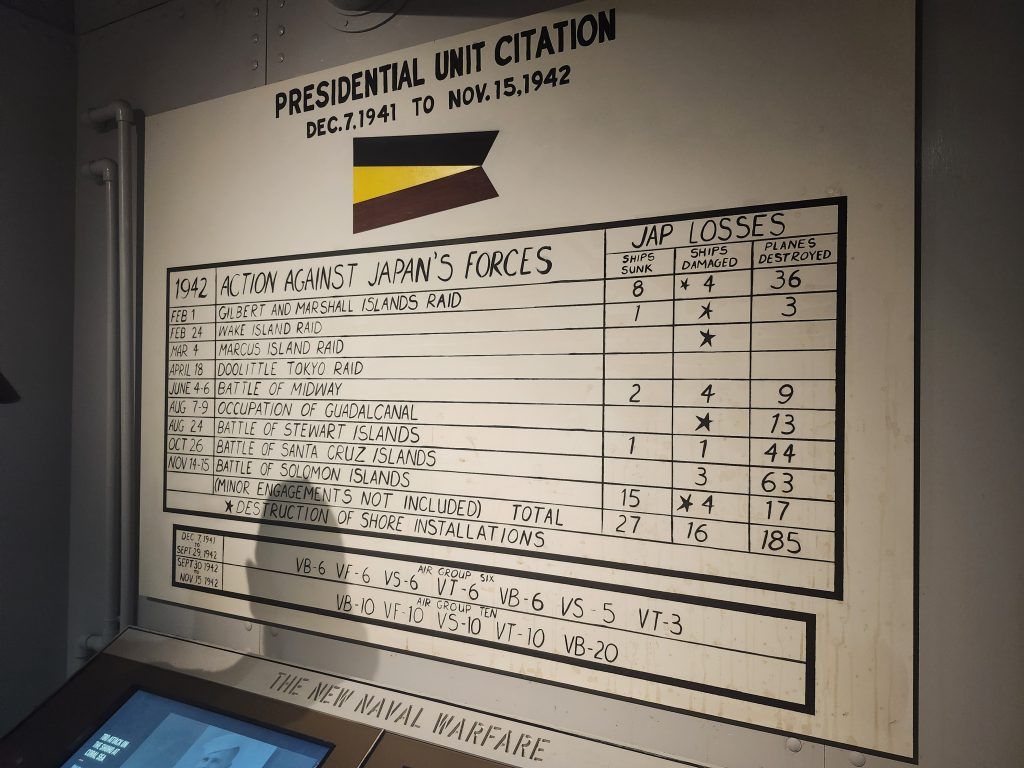 PRESIDENTIAL UNIT CITATION
DEC.7.1941 TO NOV.15,1942
JAP LOSSES
1942 ACTION AGAINST JAPAN'S FORCES SHIPS SUNK SHIPS DAMAGED PLANES DESTROYED
FEB 1 GILBERT AND MARSHALL ISLANDS RAID 8 ★ 4 36
FEB 24 WAKE ISLAND RAID 1 ★ 3
MAR 4 MARCUS ISLAND RAID ★
APRIL 18 DOOLITTLE TOKYO RAID
JUNE 4-6 BATTLE OF MIDWAY 2 4 9
AUG 7-9 OCCUPATION OF GUADALCANAL ★ 13
AUG 24 BATTLE OF STEWART ISLANDS 1 1 44
OCT 26 BATTLE OF SANTA CRUZ ISLANDS 3 63
NOV 14-15 BATTLE OF SOLOMON ISLANDS 15 ★ 4 17
(MINOR ENGAGEMENTS NOT INCLUDED) TOTAL 27 16 185
★ DESTRUCTION OF SHORE INSTALLATIONS
DEC 7, 1941
TO
SEPT 29, 1942
AIR GROUP SIX
VB-6 VF-6 VS-6 VT-6 VB-6 VS-5 VT-3
SEPT 30 1942
TO
NOV 15 1942
AIR GROUP TEN
VB-10 VF-10 VS-10 VT-10 VB-20
THE NEW NAVAL WARFARE
ATTACK ON
CORAL SEA